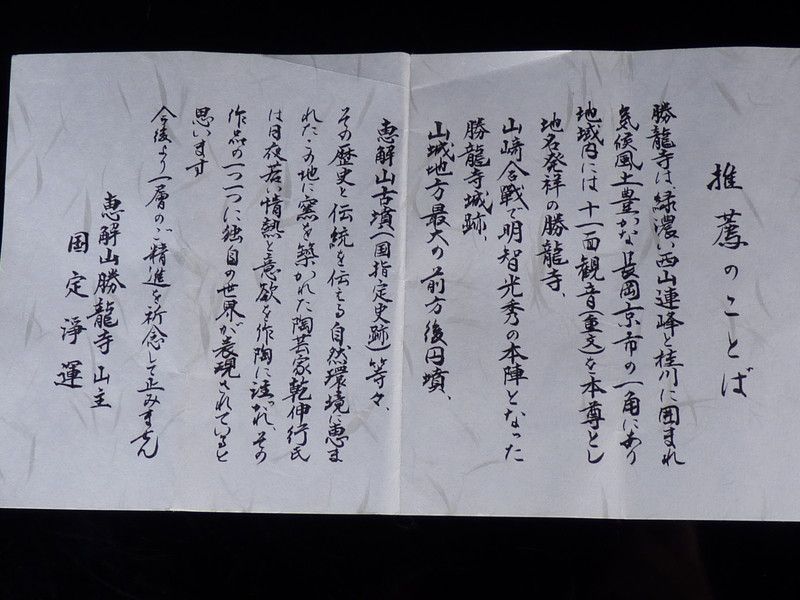 推薦のことば
勝龍寺は、緑濃い西山連峰と桂川に囲まれ
気候風土豊かな長岡京市の一角にあり
地域内には十一面観音(重文)を本尊とし
地名発祥の勝龍寺、
山﨑合戦で明智光秀の本陣となった
勝龍寺城跡、
山城地方最大の前方後円墳、
恵解山古墳(国指定史跡)等々、
その歴史と伝統を伝える自然環境に恵ま
れたこの地に窯を築かれた陶芸家乾伸行氏
は日夜若い情熱と意欲を作陶に注がれ、その
作品の一つ一つに独自の世界が表現されていると
思います
今後より一層のご精進を祈念して止みません
恵解山勝龍寺山主
国定淨運